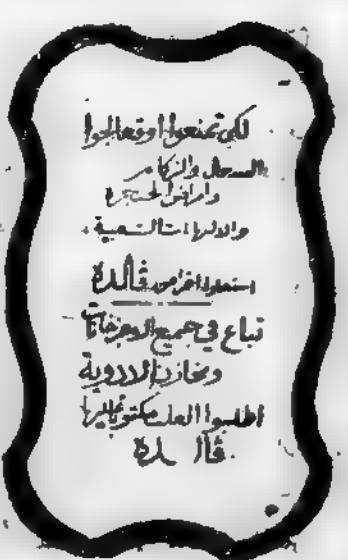 لكي تمنعوا أو تعالجوا
السعال والزكام
وامراض الحنجرة
والالتهابات الشعبية
استعملوا اقراص ڤالدة
تباع في جميع الاجزخانات
ومخازن الادوية
اطلبوا العلب مكتوبا عليها
ڤالدة